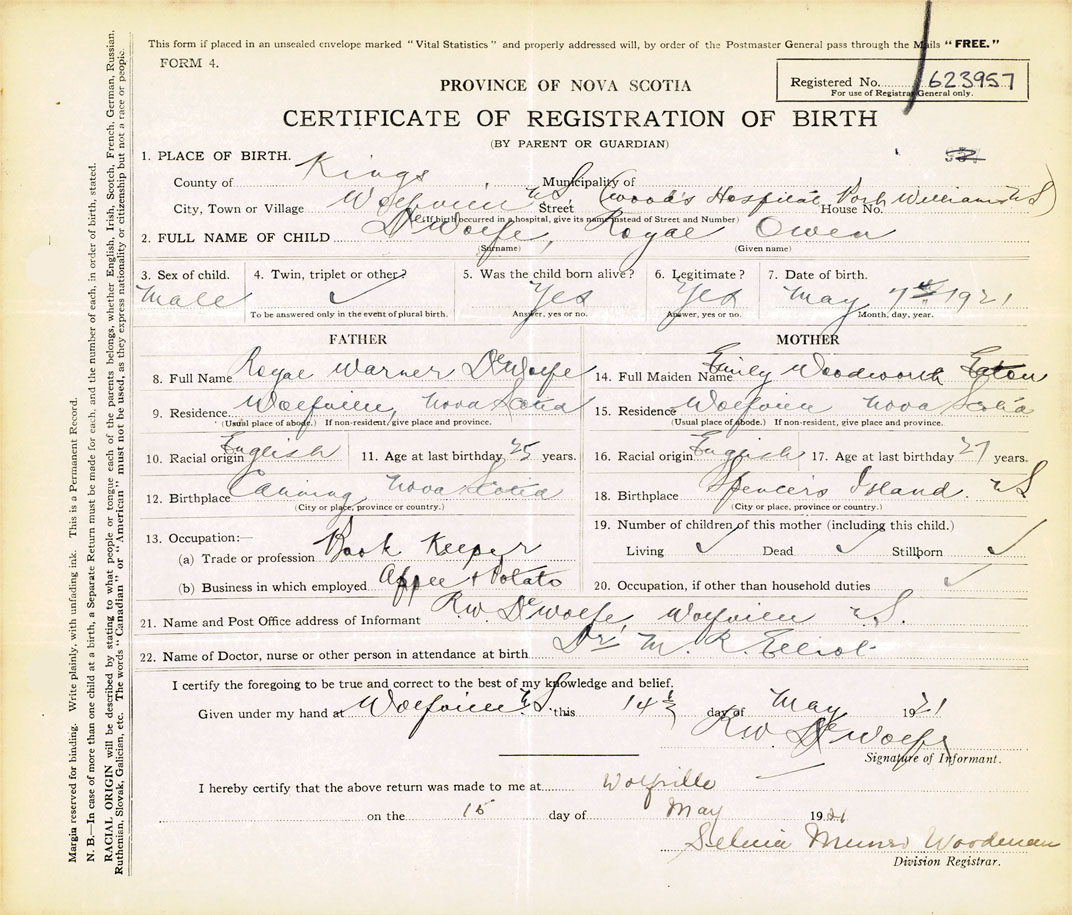 This form if placed in an unsealed envelope marked "Vital Statistics" and properly addressed will, by order of the Postmaster General pass through the Mails "FREE."
FORM 4.
Registered No. 623957
For use of Registrar General only.
PROVINCE OF NOVA SCOTIA
CERTIFICATE OF REGISTRATION OF BIRTH
(BY PARENT OR GUARDIAN)
1. PLACE OF BIRTH.
County of Kings Municipality of
City, Town or Village Wolfville N.S. Street (Wood's Hospital, Port Williams N S) House No.
(If birth occurred in a hospital, give its name instead of Street and Number)
2. FULL NAME OF CHILD DeWolfe, Royal Owen
(Surname) (Given name)
3. Sex of child. 4. Twin, triplet or other? 5. Was the child born alive? 6. Legitimate? 7. Date of birth.
Male ✓ Yes Yes May 7th 1921
To be answered only in the event of plural birth. Answer, yes or no. Answer, yes or no. Month, day, year.
FATHER
8. Full Name Royal Warner DeWolfe
9. Residence Wolfville, Nova Scotia
(Usual place of abode.) If non-resident, give place and province.
10. Racial origin English 11. Age at last birthday 25 years.
12. Birthplace Canning, Nova Scotia
(City or place, province or country.)
13. Occupation:—
(a) Trade or profession Book Keeper
(b) Business in which employed Apple + Potato
MOTHER
14. Full Maiden Name Emily Woodworth Eaton
15. Residence Wolfville Nova Scotia
(Usual place of abode.) If non-resident, give place and province.
16. Racial origin English 17. Age at last birthday 27 years.
18. Birthplace Spencer's Island. N S
(City or place, province or country.)
19. Number of children of this mother (including this child.)
Living ✓ Dead ✓ Stillborn ✓
20. Occupation, if other than household duties ✓
21. Name and Post Office address of Informant R.W. DeWolfe, Wolfville N.S.
22. Name of Doctor, nurse or other person in attendance at birth Dr. M. R. Elliot
I certify the foregoing to be true and correct to the best of my knowledge and belief.
Given under my hand at Wolfville N.S. this 14th day of May 1921
R.W. DeWolfe
Signature of Informant.
I hereby certify that the above return was made to me at Wolfville
on the 15 day of May 1921
Munro Woodman
Division Registrar.
Margin reserved for binding. Write plainly, with unfading ink. This is a Permanent Record.
N. B.—In case of more than one child at a birth, a Separate Return must be made for each, and the number of each, in order of birth, stated.
RACIAL ORIGIN will be described by stating to what people or tongue each of the parents belongs, whether English, Irish, Scotch, French, German, Russian,
Ruthenian, Slovak, Galician, etc. The words "Canadian" or "American" must not be used, as they express nationality or citizenship but not a race or people.